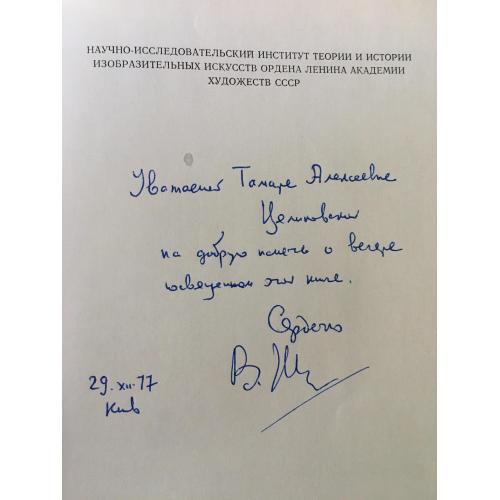 НАУЧНО-ИССЛЕДОВАТЕЛЬСКИЙ ИНСТИТУТ ТЕОРИИ И ИСТОРИИ
ИЗОБРАЗИТЕЛЬНЫХ ИСКУССТВ ОРДЕНА ЛЕНИНА АКАДЕМИИ
ХУДОЖЕСТВ СССР
Уважаемой Тамаре Алексеевне
на добрую память о вечере
посвященном этой книге.
Сердечно
29.XII.77
Киев